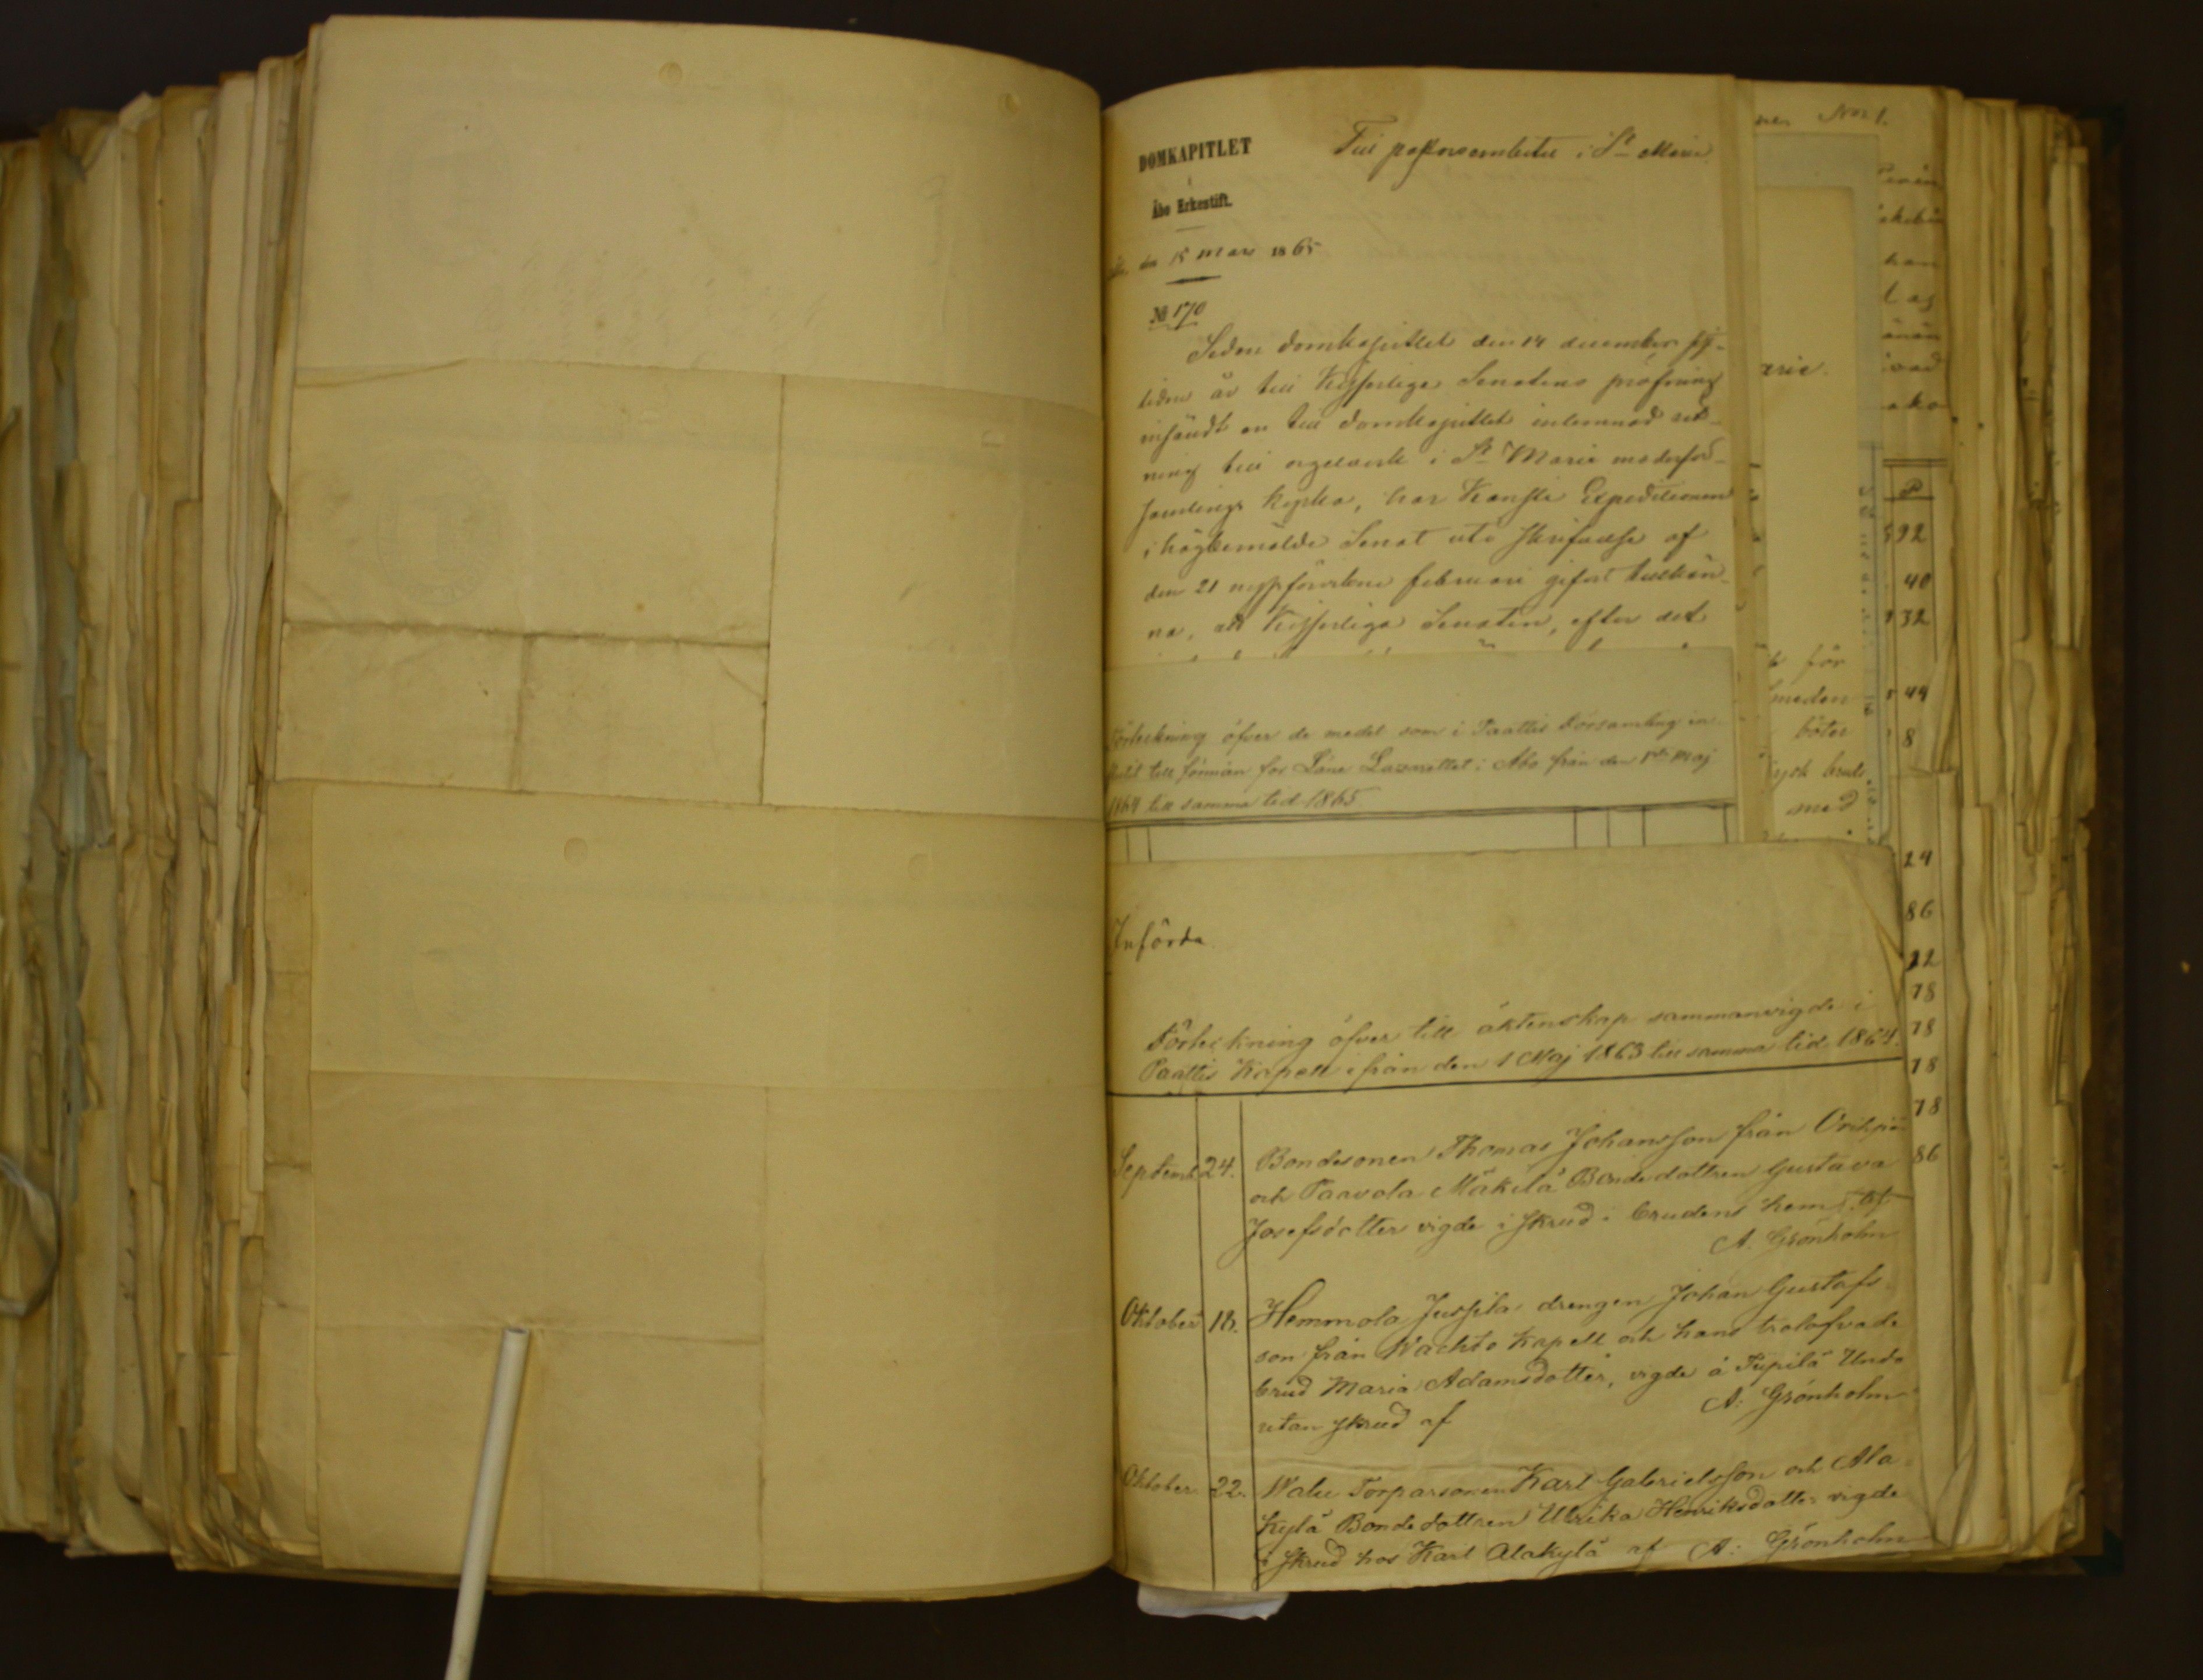 DOMKAPITLET
i
Åbo Erkestift.
Åbo, den 15 Mars 1865
№ 170
Till pastorsembetet i St Marie
Sedan domkapitlet den 14 december sist-
lidne år till Kejserliga Senatens pröfning
insändt en till domkapitlet inlemnad rit-
ning till orgelverk i St Marie moderför-
samlings kyrka, har Kansli Expeditionen
i högbemälde Senat uti skrifvelse af
den 21 nystförvikne februari gifvit tillkän-
na, att Kejserliga Senaten, efter det
Förteckning öfver de medel som i Paattis Församling in
flutit till förmån för Läne Lazarettet i Åbo från den 1sta Maj
1864 till samma tid 1865
Införda
Förteckning öfver till äktenskap sammanvigde i
Paattis Kapell ifrån den 1 Maj 1863 till samma tid 1864.
Septemb. 24. Bondesonen Thomas Johansson från Orihpää
och Paavola Mäkilä Bondedottren Gustava
Josefsdotter vigde i skrud i brudens hem, af
A. Grönholm
Oktober 18. Hemmola Jussila drengen Johan Gustafs
son från Wachto Kapell och hans trolofvade
brud Maria Adamsdotter, vigde å Tupila
utan skrud af A: Grönholm
Oktober. 22. Torparsonen Karl Gabrielsson och Ala
kylä Bondedottren Ulrika Henriksdotter vigde
i skrud hos Karl Alakylä af A: Grönholm
Nro 1.
arie.
för
meden
böter
med
P
92
40
32
44
8
24
86
22
78
78
78
78
86